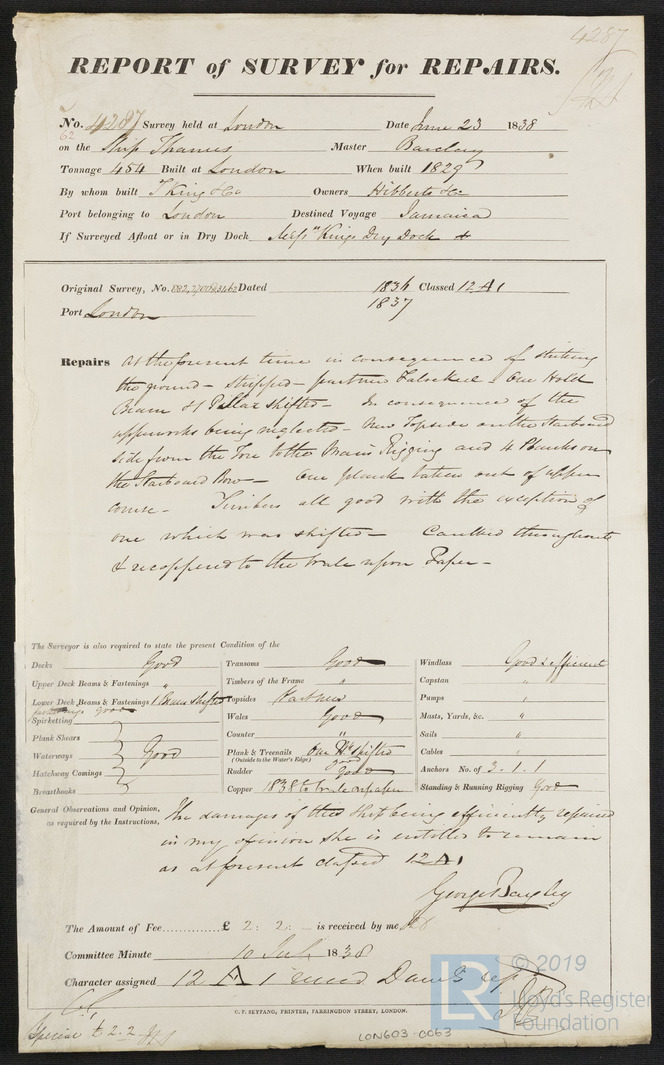 4287
REPORT of SURVEY for REPAIRS.
No. 4287 Survey held at London Date June 23 1838
62
on the Ship Thames Master Barclay
Tonnage 454 Built at London When built 1829
By whom built T King & Co Owners Hibberts & Co
Port belonging to London Destined Voyage Jamaica
If Surveyed Afloat or in Dry Dock Messrs Kings Dry Dock
Original Survey, No. Dated 1836 Classed 12 A 1
1837
Port London
Repairs At the present time in consequence of striking
the ground - stripped - part new Falsekeel - One Hold
Beam & 1 Pillar shifted - In consequence of the
upperworks being neglected - New Topside on the Starboard
side from the Fore to the Main Rigging and 4 Planks on
the Starboard Bow - One plank taken out of upper
course - Timbers all good with the exception of
one which was shifted - Caulked throughout
& recoppered to the Wale upon Paper -
The Surveyor is also required to state the present Condition of the
Decks Good
Upper Deck Beams & Fastenings "
Lower Deck Beams & Fastenings 1 Beam shifted
fastenings good
Spirketting
Plank Shears
Waterways Good
Hatchway Comings
Breasthooks
Transoms Good
Timbers of the Frame "
Topsides Part new
Wales Good
Counter "
Plank & Treenails One Pk shifted
(Outside to the Water's Edge) good
Rudder Good
Copper 1838 to Wale on paper
Windlass Good & efficient
Capstan "
Pumps "
Masts, Yards, &c. "
Sails "
Cables "
Anchors No. of 3. 1. 1
Standing & Running Rigging Good
General Observations and Opinion,
as required by the Instructions,
The damages of this Ship being efficiently repaired
in my opinion she is entitled to remain
as at present classed 12 A 1
George Bayley
The Amount of Fee.............. £ 2: 2: - is received by me
Committee Minute 10 July 1838
Character assigned 12 A 1
C. F. SEYFANG, PRINTER, FARRINGDON STREET, LONDON.
Special £ 2.2
LON603-0063
LR
© 2019
Lloyd's Register
Foundation